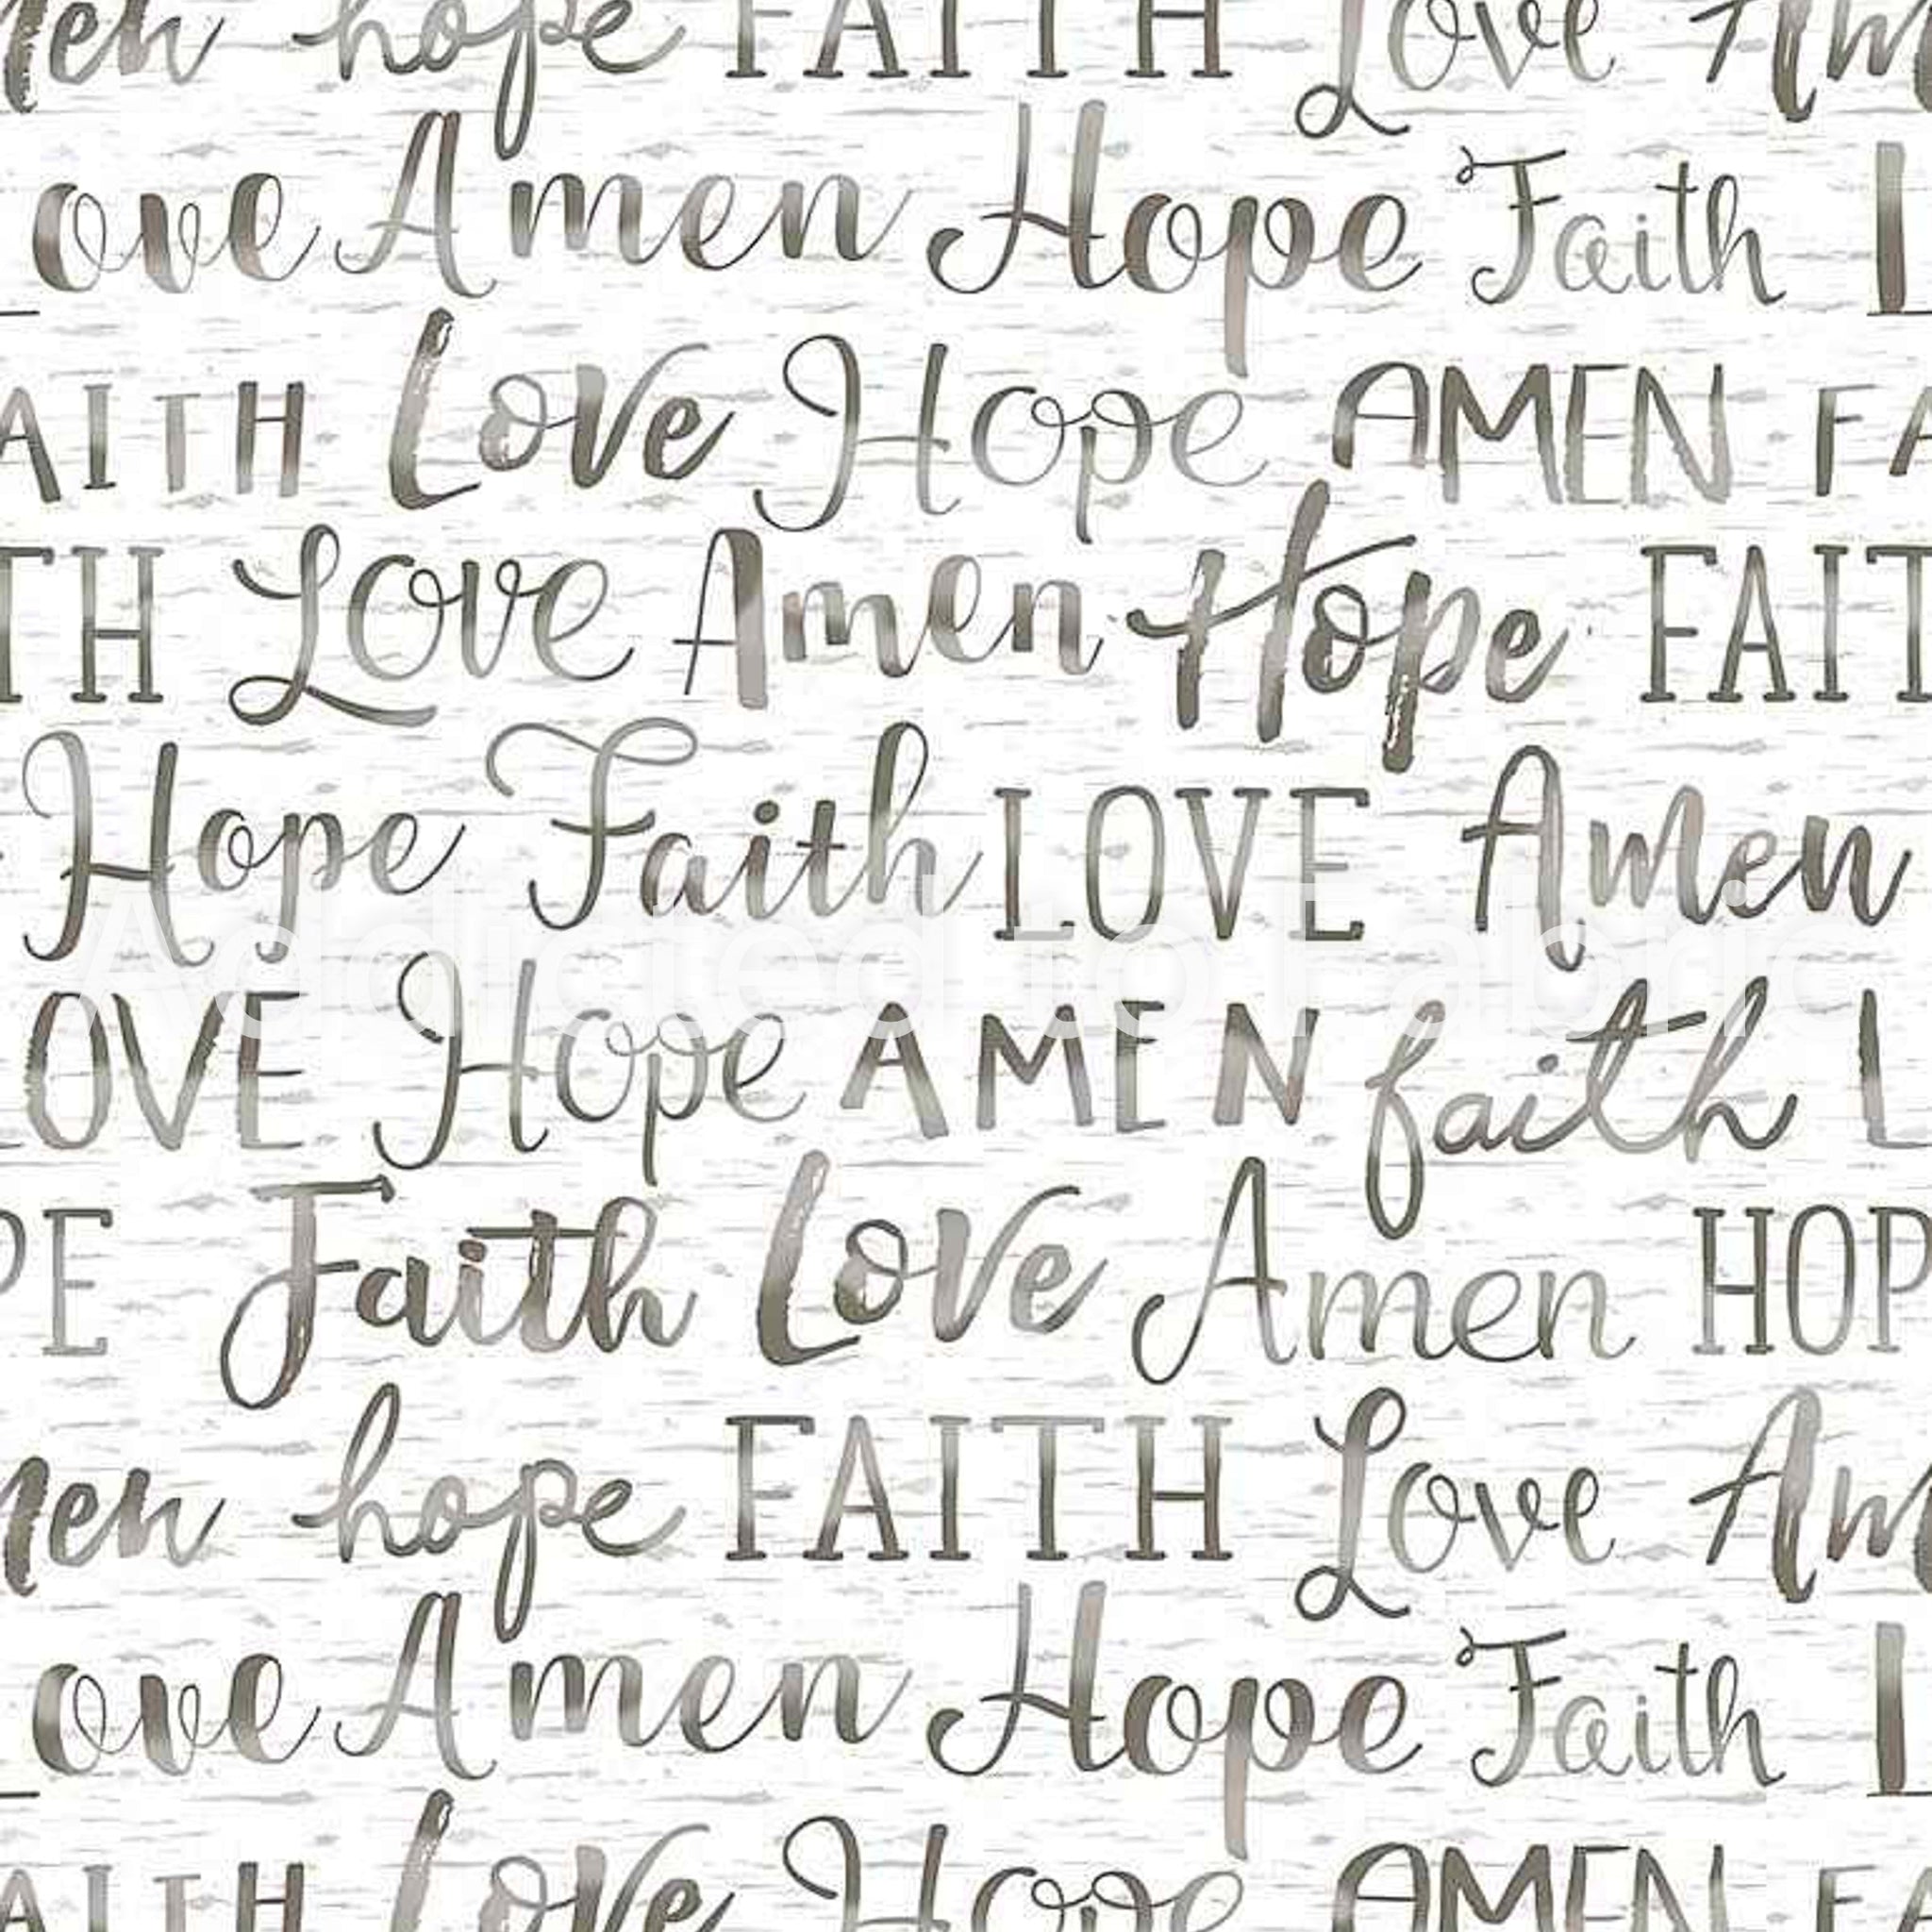 men hope FAITH Love Am
ove Amen Hope Faith L
AITH Love Hope AMEN FA
TH Love Amen Hope FAIT
Hope Faith LOVE Amen
Addicted to Fabric
OVE Hope AMEN faith L
PE Faith Love Amen HOP
men hope FAITH Love Am
ove Amen Hope Faith L
AITH Love Hope AMEN FA